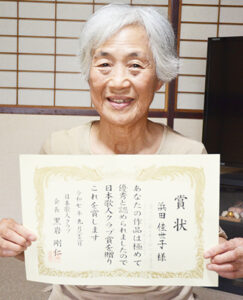 賞状
浜田佳世子様
あなたの作品は極めて
優秀と認められましたので
日本歌人クラブ賞を贈り
これを賞します
令和七年九月
日本歌人クラブ
会長 黒岩剛仁